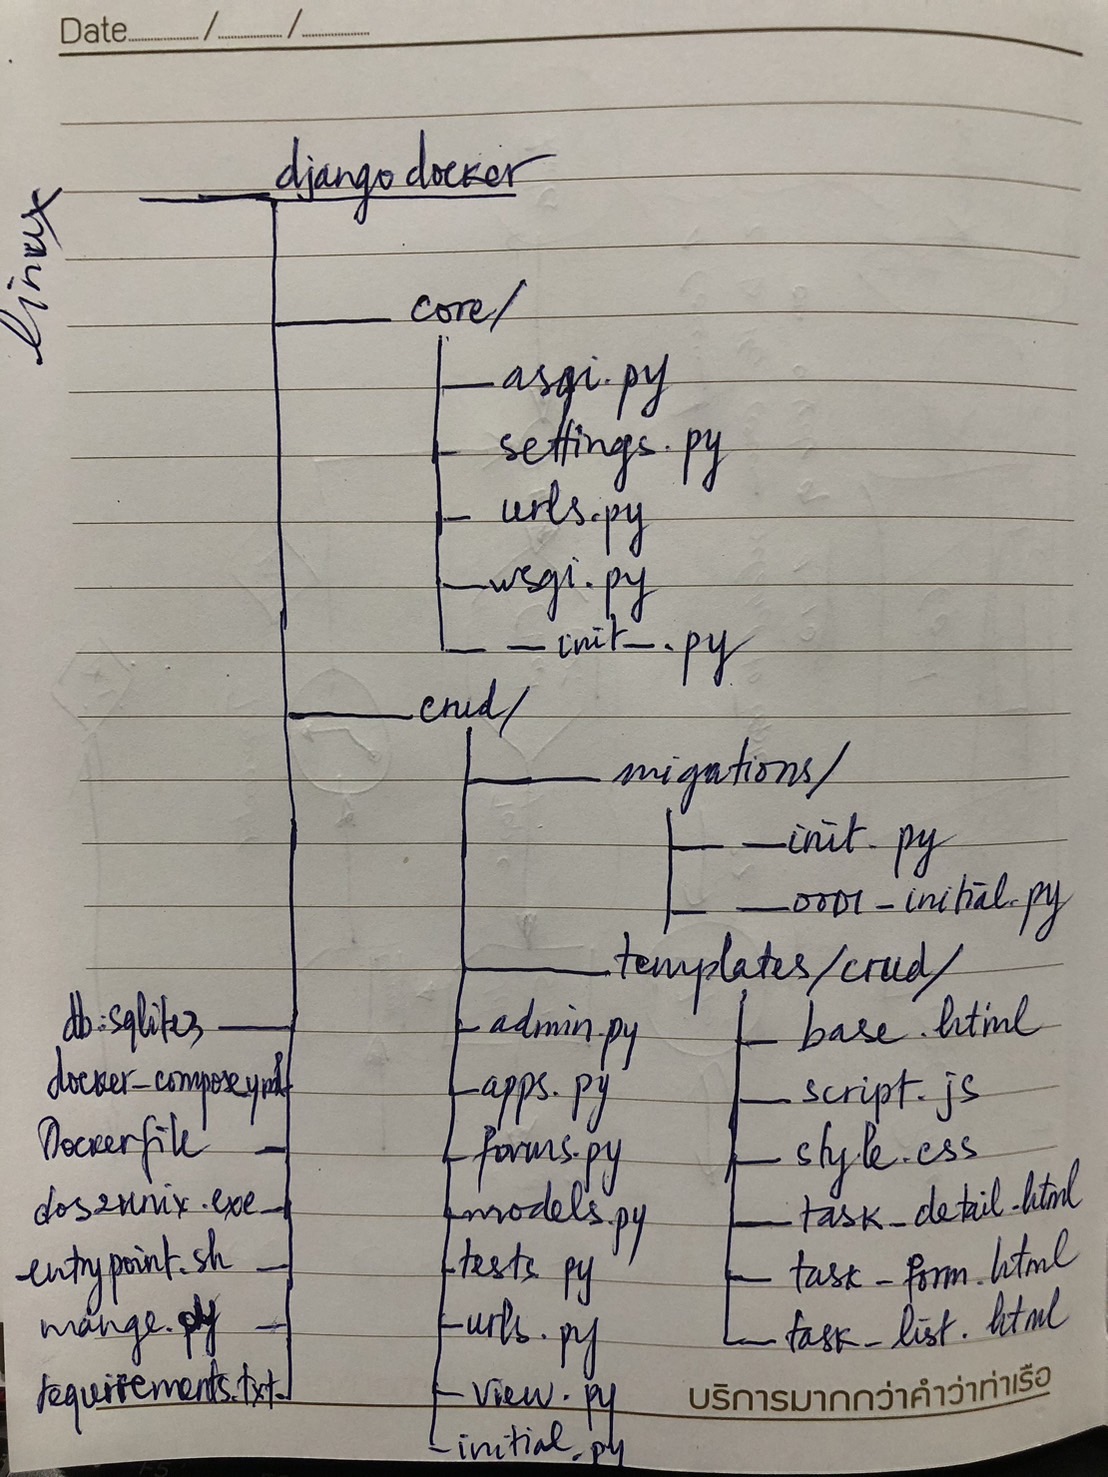 Date / /
linux
django docker
core/
asgi.py
settings.py
urls.py
wsgi.py
__init__.py
crud/
migations/
__init.py
__0001_initial.py
templates/crud/
base.html
script.js
style.css
task_detail.html
task_form.html
task_list.html
admin.py
apps.py
forms.py
models.py
tests py
urls.py
view.py
initial.py
db.sqlite3
docker-compose.yml
Dockerfile
dos2unix.exe
entrypoint.sh
mange.py
requirements.txt
บริการมากกว่าคำว่าท่าเรือ